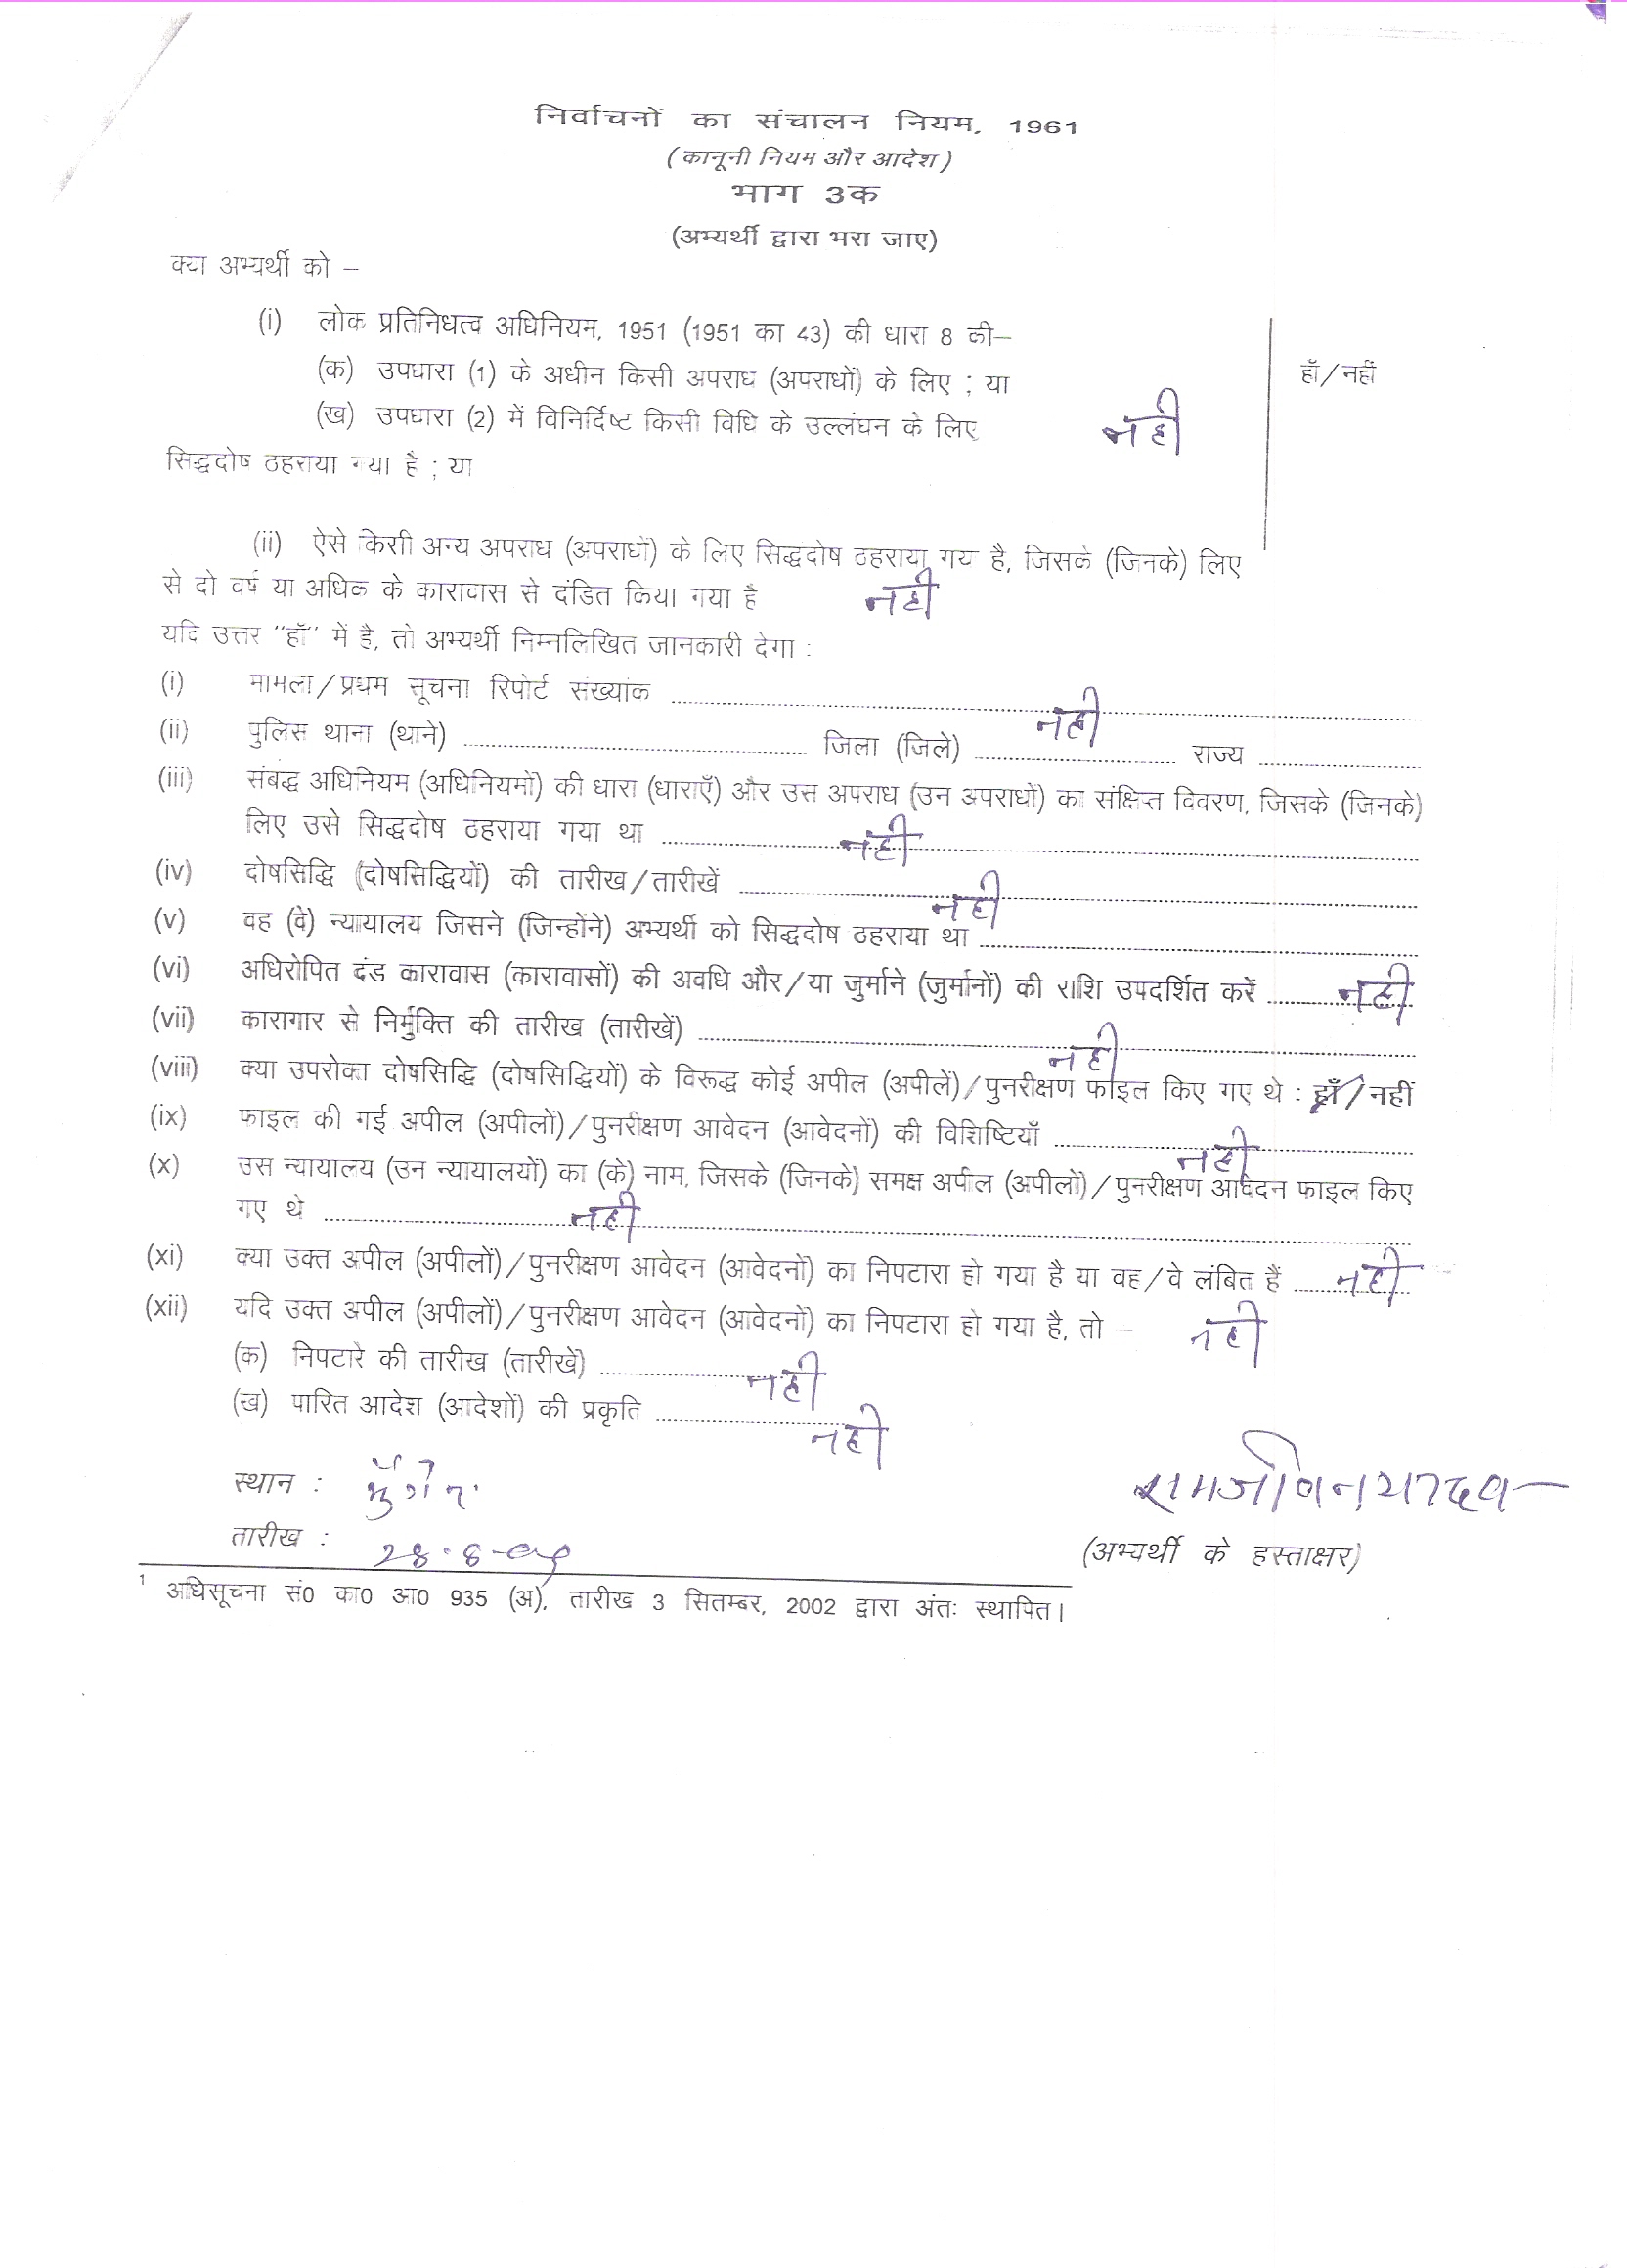 निर्वाचनों का संचालन नियम, 1961
(कानूनी नियम और आदेश)
भाग 3क
(अभ्यर्थी द्वारा भरा जाए)
क्या अभ्यर्थी को –
(i) लोक प्रतिनिधत्व अधिनियम, 1951 (1951 का 43) की धारा 8 की–
(क) उपधारा (1) के अधीन किसी अपराध (अपराधों) के लिए ; या हाँ/नहीं
(ख) उपधारा (2) में विनिर्दिष्ट किसी विधि के उल्लंघन के लिए नही
सिद्धदोष ठहराया गया है ; या
(ii) ऐसे किसी अन्य अपराध (अपराधों) के लिए सिद्धदोष ठहराया गया है, जिसके (जिनके) लिए
से दो वर्ष या अधिक के कारावास से दंडित किया गया है नही
यदि उत्तर "हाँ" में है, तो अभ्यर्थी निम्नलिखित जानकारी देगा :
(i) मामला/प्रथम सूचना रिपोर्ट संख्यांक
नही
(ii) पुलिस थाना (थाने) जिला (जिले) राज्य
(iii) संबद्ध अधिनियम (अधिनियमों) की धारा (धाराएँ) और उस अपराध (उन अपराधों) का संक्षिप्त विवरण, जिसके (जिनके)
लिए उसे सिद्धदोष ठहराया गया था नही
(iv) दोषसिद्धि (दोषसिद्धियों) की तारीख/तारीखें नही
(v) वह (वे) न्यायालय जिसने (जिन्होंने) अभ्यर्थी को सिद्धदोष ठहराया था
(vi) अधिरोपित दंड कारावास (कारावासों) की अवधि और/या जुर्माने (जुर्मानों) की राशि उपदर्शित करें नही
(vii) कारागार से निर्मुक्ति की तारीख (तारीखें) नही
(viii) क्या उपरोक्त दोषसिद्धि (दोषसिद्धियों) के विरूद्ध कोई अपील (अपीलें)/पुनरीक्षण फाइल किए गए थे : हाँ/नहीं
(ix) फाइल की गई अपील (अपीलों)/पुनरीक्षण आवेदन (आवेदनों) की विशिष्टियाँ नही
(x) उस न्यायालय (उन न्यायालयों) का (के) नाम, जिसके (जिनके) समक्ष अपील (अपीलों)/पुनरीक्षण आवेदन फाइल किए
गए थे नही
(xi) क्या उक्त अपील (अपीलों)/पुनरीक्षण आवेदन (आवेदनों) का निपटारा हो गया है या वह/वे लंबित हैं नही
(xii) यदि उक्त अपील (अपीलों)/पुनरीक्षण आवेदन (आवेदनों) का निपटारा हो गया है, तो – नही
(क) निपटारे की तारीख (तारीखें) नही
(ख) पारित आदेश (आदेशों) की प्रकृति नही
स्थान : मुँगेर रामजीवन यादव
तारीख : (अभ्यर्थी के हस्ताक्षर)
1 अधिसूचना सं0 का0 आ0 935 (अ), तारीख 3 सितम्बर, 2002 द्वारा अंतः स्थापित।